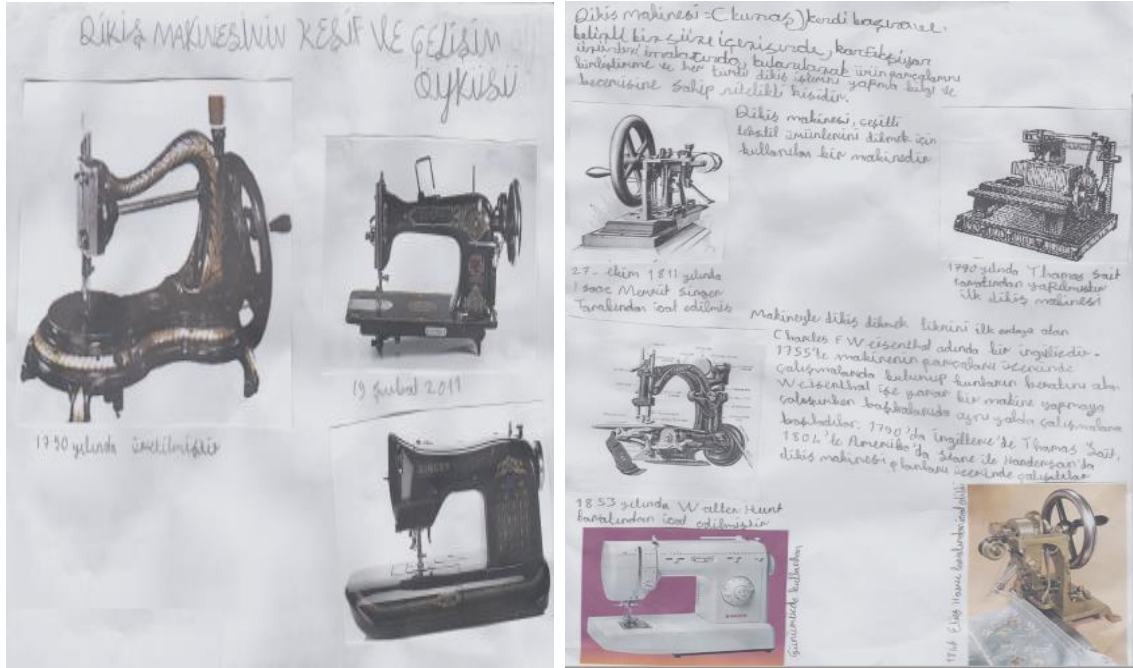 DİKİŞ MAKİNESİNİN KEŞİF VE GELİŞİM
ÖYKÜSÜ
19 Şubat 2011
1790 yılında üretilmiştir
SINGER
Dikiş makinesi = (kumaş) kendi başına ve
belirli bir süre içerisinde, konfeksiyon
ürünleri imalatında, kullanılarak ürün parçalarını
birleştirme ve her türlü dikiş işlerini yapma bilgi ve
becerisine sahip nitelikli kişidir.
Dikiş makinesi, çeşitli
tekstil ürünlerini dikmek için
kullanılan bir makinedir
27 - ekim 1811 yılında
Isaac Merrit Singer
Tarafından icat edilmiş
1790 yılında Thomas Sait
tarafından yapılmıştır
ilk dikiş makinesi
Makineyle dikiş dikmek fikrini ilk ortaya atan
Charles F Weisenthal adında bir ingilizdir.
1755'te makinenin parçaları üzerinde
çalışmalarda bulunup bunların beratını alan
Weisenthal işe yarar bir makine yapmaya
çalışırken başkalarıda aynı yolda çalışmalara
başladılar. 1790'da İngiltere'de Thomas Sait,
1804'te Amerika'da Stone ile Handerson'da
dikiş makinesi planları üzerinde çalıştılar
1853 yılında Walter Hunt
tarafından icat edilmiştir
Günümüzde kullanılan
SINGER
1846 Elias Howe tarafından icat edildi